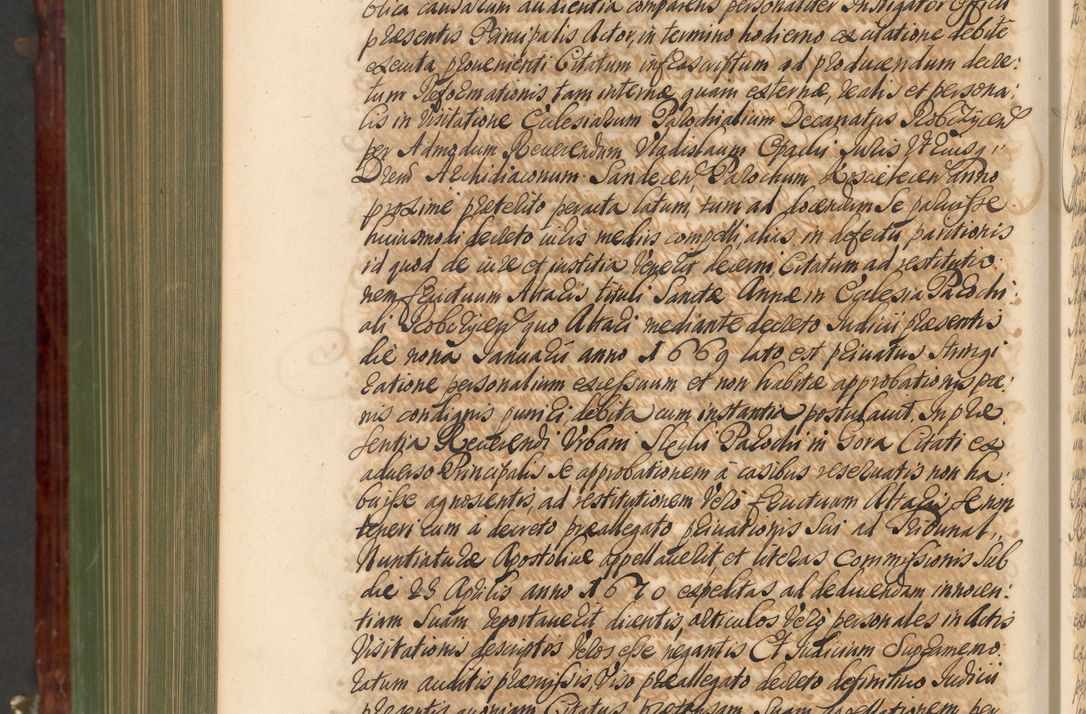 blica causarum audientia comparens personaliter Instigator Officii
præsentis Principalis Actor, in termino hodierno ex citatione debite
executa proveniendi Citatum infrascriptum ad producendum decre:
tum Reformationis, tam internæ, quam externæ, realis et persona:
lis in Visitatione Ecclesiarum Parochialium Decanatus Dobczÿcen
per Admodum Reverendum Vladislaum Opacki Juris Vtriusq
Drem Archidiaconum Sandecen Parochum anno
proxime præterito peracta latum, tum ad docendum Se paruisse
huiusmodi decreto iuris mediis compelli, alias, in defectu paritionis
id quod de iure et iustitia Venerit decerni, Citatum ad restitutio:
nem fructuum Altaris tituli Sanctæ Annæ in Ecclesia Parochi
ali Dobczÿcen quo Altari mediante decreto Iudicii præsentis
die nona Januarii anno 1669 lato est privatus
ratione personalium excessuum et non habitæ approbationis pæ:
nis condignis puniri debita cum instantia postulavit. In præ
sentia Reverendi Vrbani Parochi in Gora Citati ex
adverso Principalis Se approbationem à casibus reservatis non ha:
buisse agnoscentis, ad restitutionem Vero fructuum Altaris Se non
teneri cum à decreto præallegato privationis Sui ad Tribunal
Nuntiaturæ Apostolicæ appellaverit et literas Commissionis Sub
die 23 Aprilis anno 1670 expeditas, ad deducendam innocen:
tiam Suam reportaverit dicentis, articulos Vero personales in Actis
Visitationis descriptos Veros esse negantis Et Iudicium Supramemo:
ratum auditis præmissis, Viso præallegato decreto definitivo Iudicii
præsentis quoniam Citatus prætensam Suam appellationem per